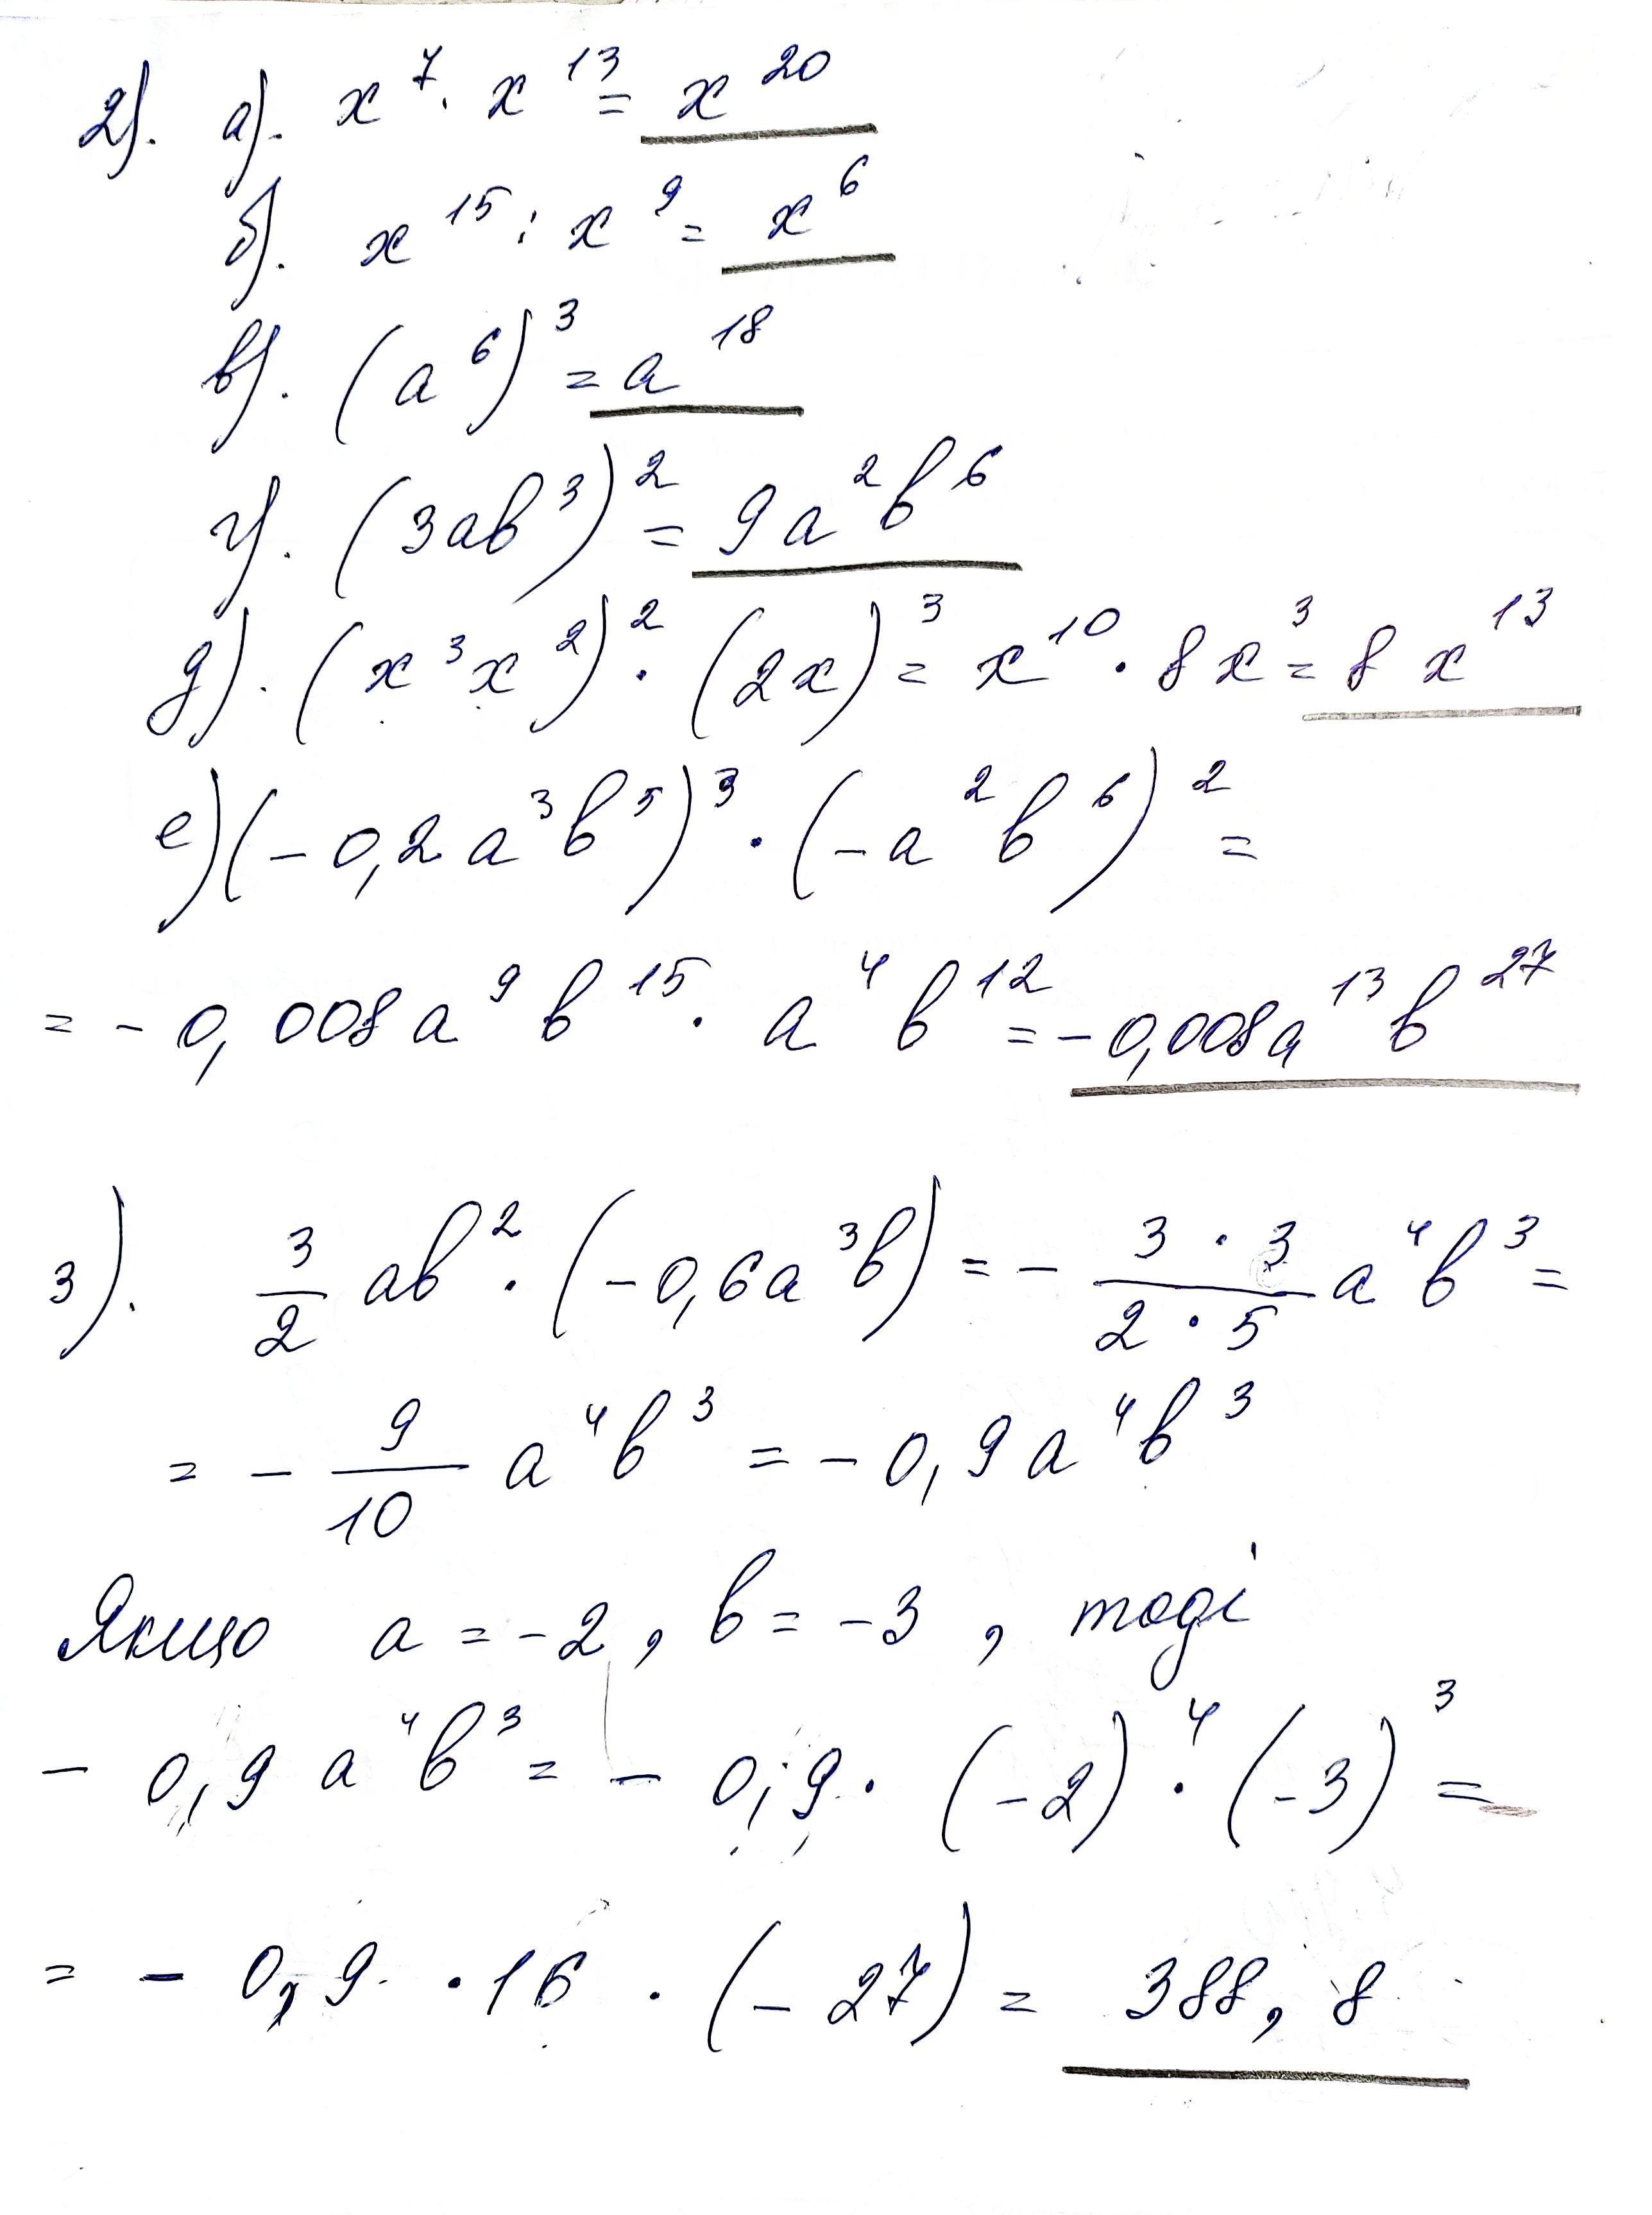 2). а). x⁷ · x¹³ = x²⁰
б). x¹⁵ : x⁹ = x⁶
в). (a⁶)³ = a¹⁸
г). (3ab³)² = 9a²b⁶
д). (x³x²)² · (2x)³ = x¹⁰ · 8x³ = 8x¹³
е) (-0,2a³b⁵)³ · (-a²b⁶)² =
= -0,008a⁹b¹⁵ · a⁴b¹² = -0,008a¹³b²⁷
3). 3/2 ab² · (-0,6a³b) = - (3 · 3)/(2 · 5) a⁴b³ =
= - 9/10 a⁴b³ = -0,9a⁴b³
Якщо a = -2, b = -3, тоді
- 0,9a⁴b³ = - 0,9 · (-2)⁴ · (-3)³ =
= - 0,9 · 16 · (-27) = 388,8